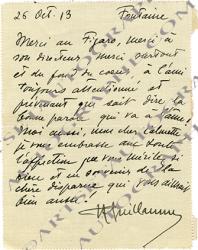 26 Oct. 13 Fontaine
Merci au Figaro, merci à
son directeur merci surtout
et du fond du coeur, à l'ami
toujours attentionné et
prévenant qui sait dire la
bonne parole qui va à l'âme!
Moi aussi, mon cher Calmette
je vous embrasse avec toute
l'affection que vous méritez si
bien et en souvenir de la
chère disparue qui vous aimait
bien aussi!
Guillaume